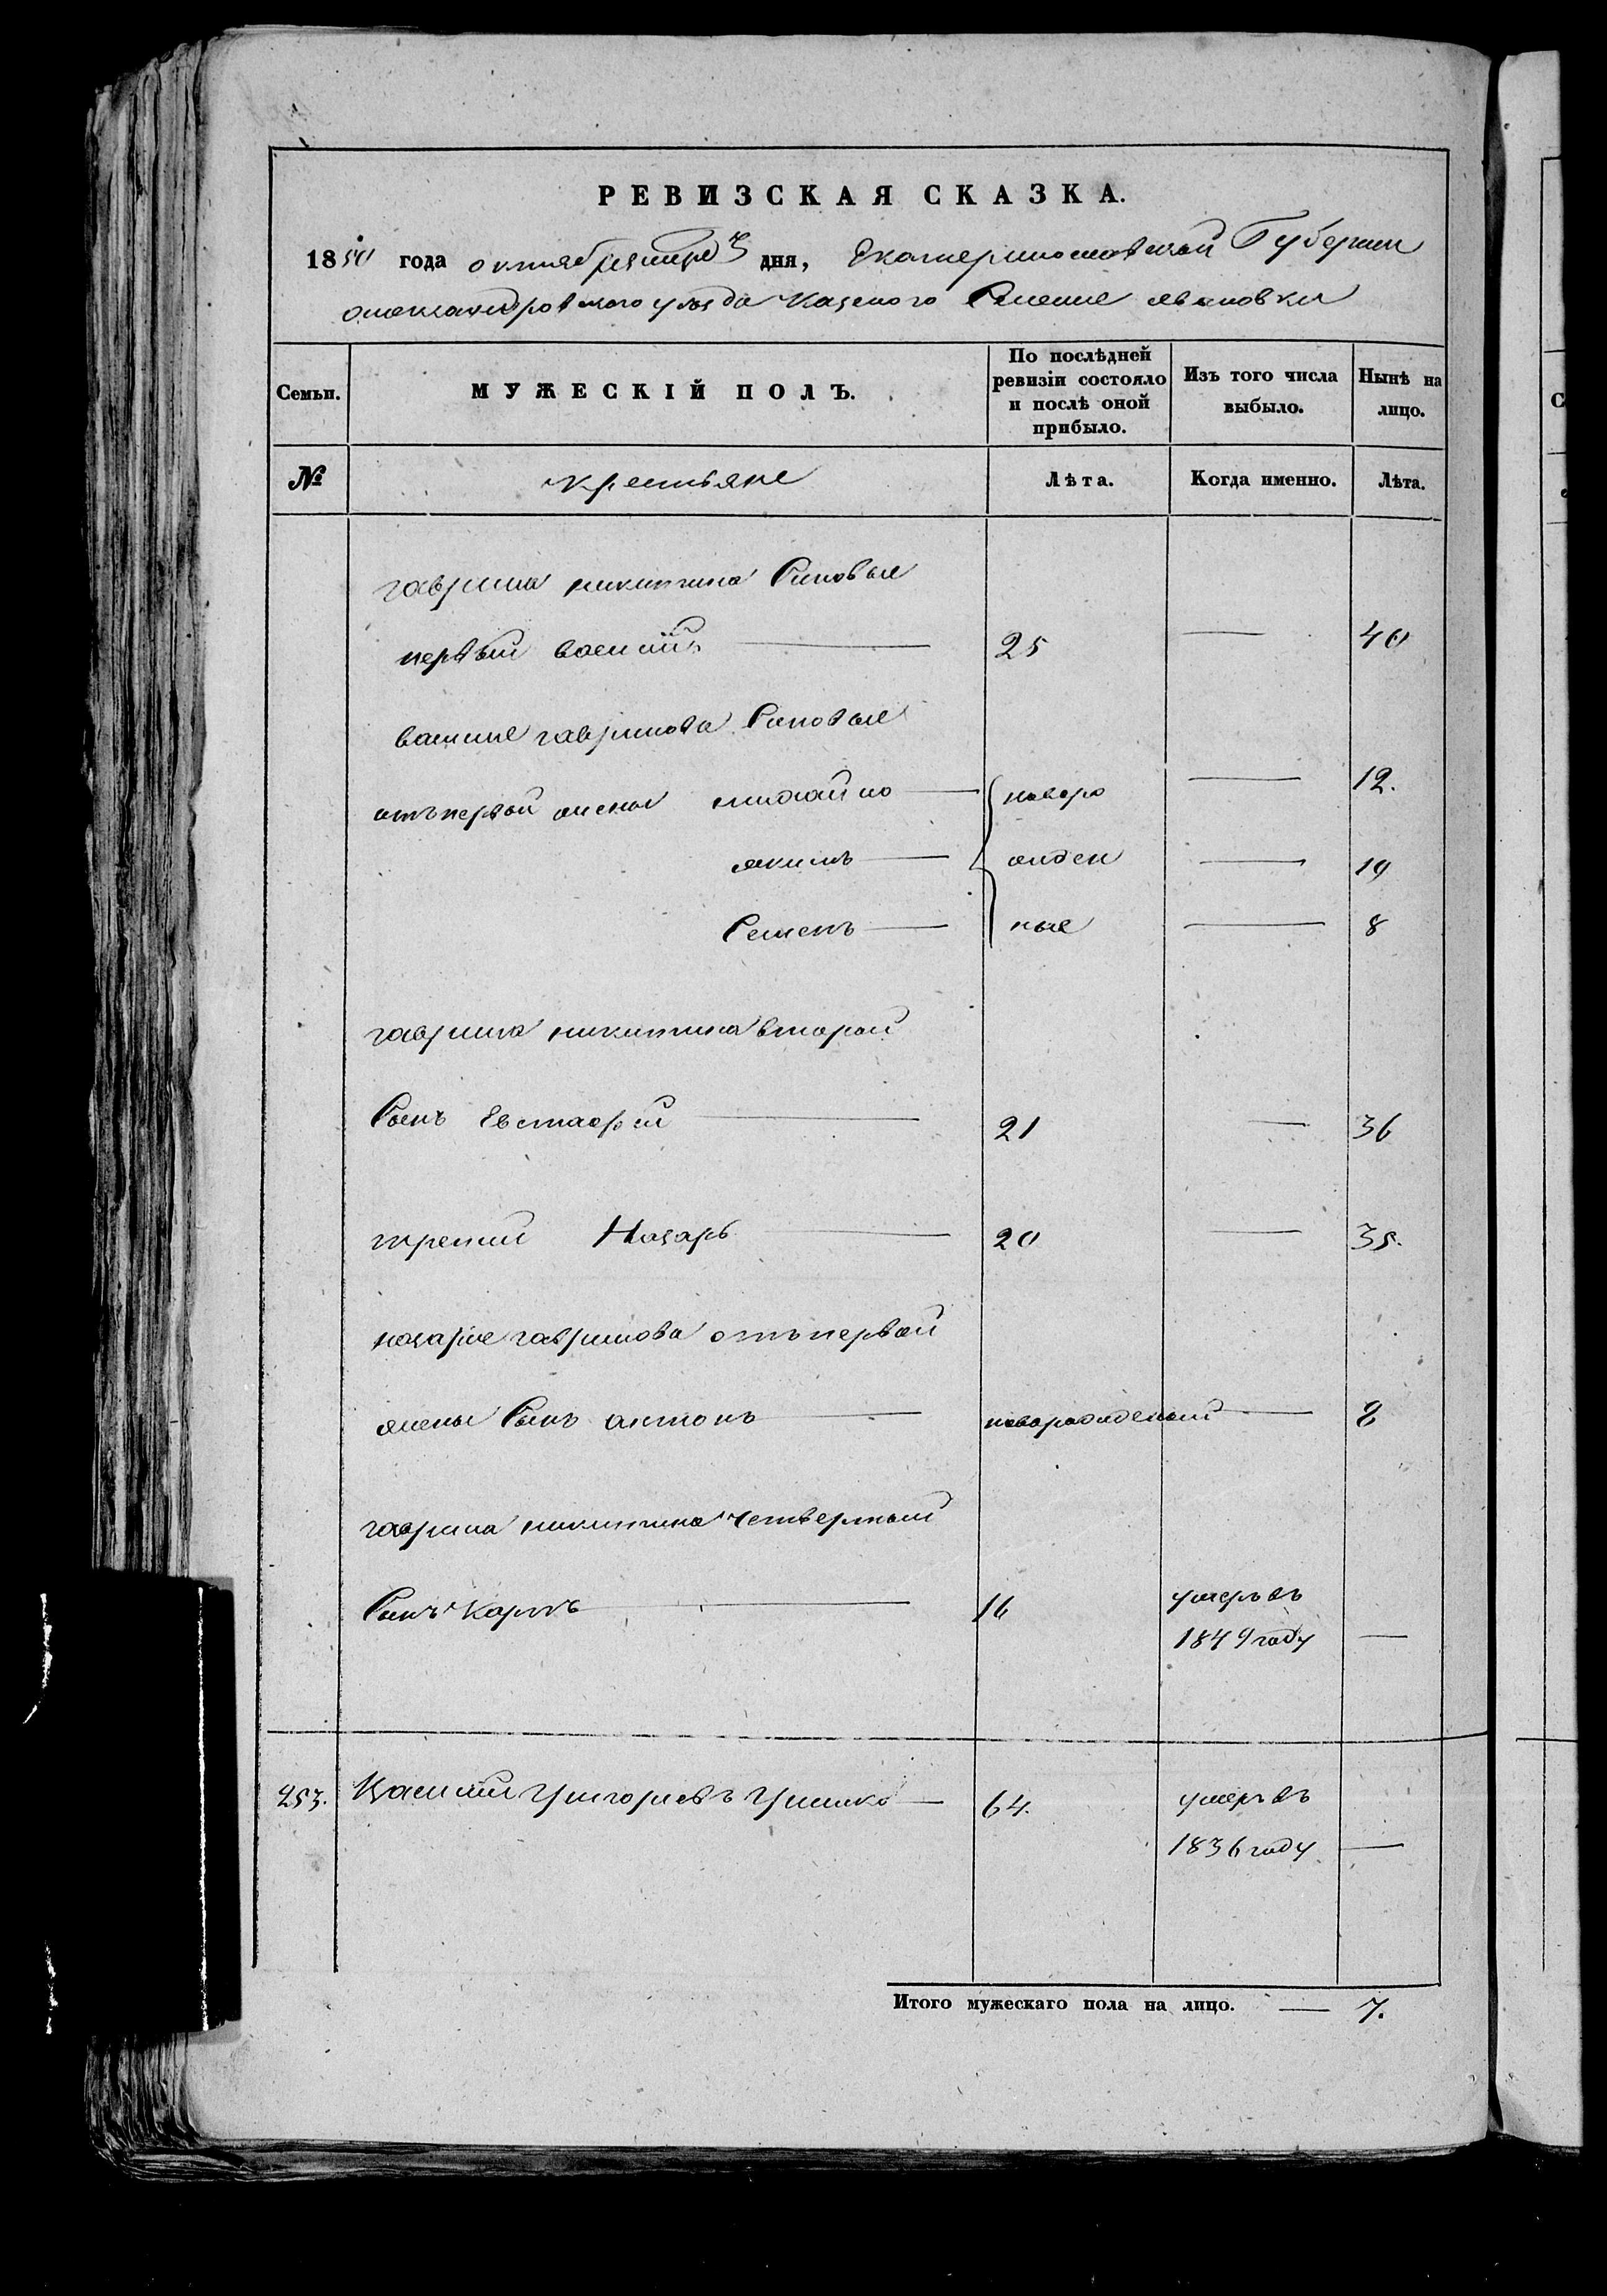 РЕВИЗСКАЯ СКАЗКА.
1850 года октября дня, Екатеринославской Губернии
Александровского уезда казеного Селение
Семьи. МУЖЕСКІЙ ПОЛЪ. По послѣдней ревизіи состояло и послѣ оной прибыло. Изъ того числа выбыло. Нынѣ на лицо.
№ крестьяне Лѣта. Когда именно. Лѣта.
гаврила никитина Сиповье
первый василий — 25 — 40
василие гаврилова Сиповье
отъ первой жены михайло — новоро — 12.
якимъ — жден — 10
Семенъ — ные — 8
гаврила никитина второй
Сынъ Евстафий — 21 — 36
третий Назаръ — 20 — 35.
назарие гаврилова отъ первой
жены Сынъ антонъ — новорожденый — 8
гаврила никитина четвертый
Сынъ карпъ — 16 умеръ въ
1849 году —
253. Василий Григориевъ — 64. умеръ въ
1836 году —
Итого мужескаго пола на лицо. — 7.